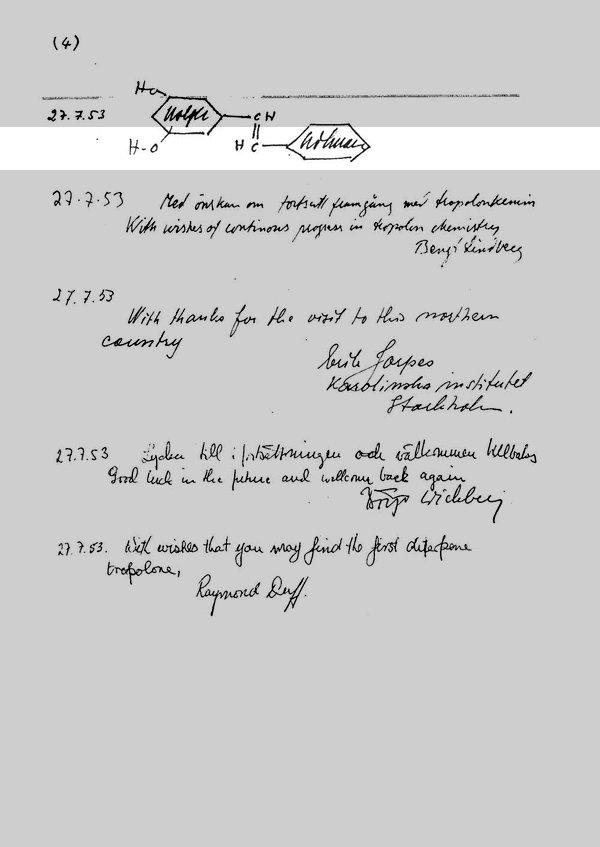 (4)
HO
27.7.53 CH
H-O HC
27.7.53 Med önskan om fortsatt framgång med tropolonkemin
With wishes of continous progress in tropolon chemistry
Bengt Lindberg
27.7.53
With thanks for the visit to this northern
country
Erik Jorpes
Karolinska institutet
Stockholm.
27.7.53 Lycka till i fortsättningen och välkommen tillbaka
Good luck in the future and wellcome back again
Börje Wickberg
27.7.53. With wishes that you may find the first diterpene
tropolone,
Raymond Duff.